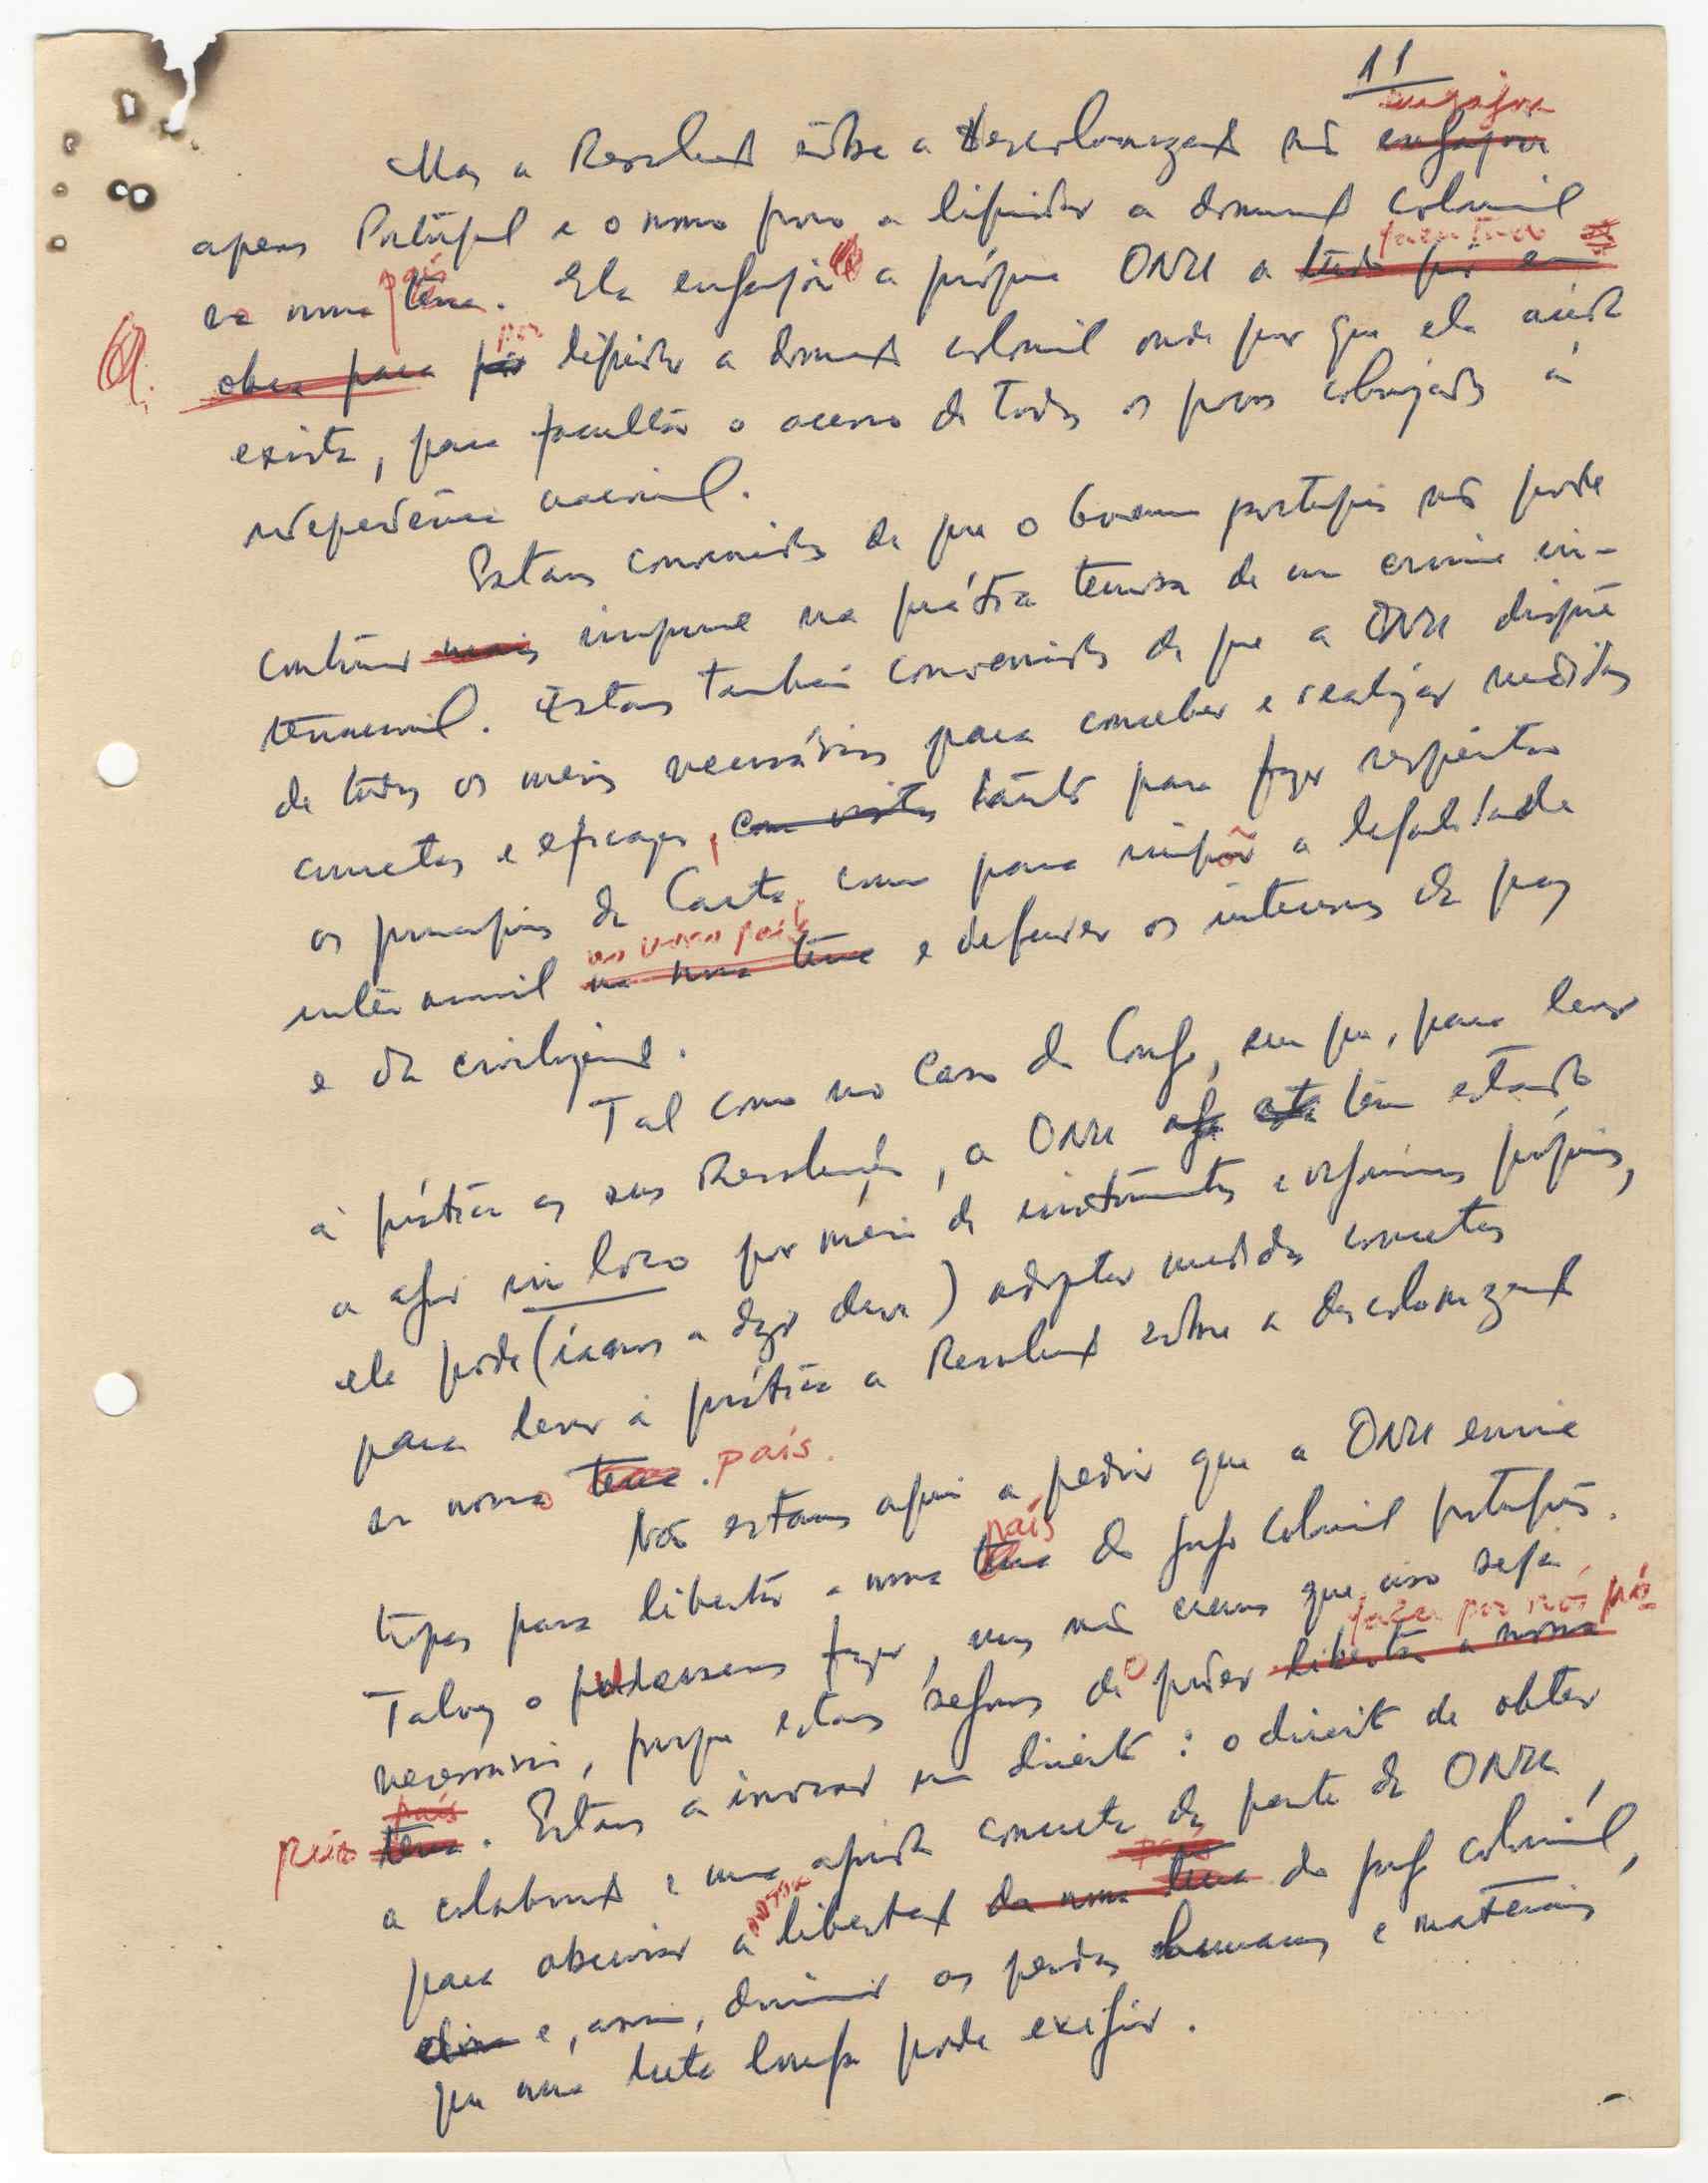 11
engaja
Mas a Resolução sôbre a descolonização não engaja
apenas Portugal e o nosso povo a liquidar a dominação colonial
país fazer tudo
na nossa terra. Ela engaja a própria ONU a tudo pôr em
obra para pôr por liquidar a dominação colonial onde quer que ela ainda
exista, para facultar o acesso de todos os povos colonizados à
independência nacional.
Estamos convencidos de que o Governo português não pode
continuar mais impune na prática teimosa de um crime in-
ternacional. Estamos também convencidos de que a ONU dispõe
de todos os meios necessários para conceber e realizar medidas
concretas e eficazes, com vistas tanto para fazer respeitar
os princípios da Carta, como para impôr a legalidade
no nosso país
internacional na nossa terra e defender os interesses da paz
e da civilização.
Tal como no caso do Congo, em que, para levar
à prática as suas Resoluções, a ONU tem estado
a agir in loco por meio de instrumentos e organismos próprios,
ela pode (íamos a dizer deve) adoptar medidas concretas
para levar à prática a Resolução sôbre a descolonização
no nosso terra. país.
Não estamos aqui a pedir que a ONU envie
país
tropas para libertar a nossa terra do jugo colonial português.
Talvez o pudessemos fazer, mas não cremos que isso seja
fazer por nós pró-
necessário, porque estamos seguros de o poder libertar a nossa
país
terra. Estamos a invocar um direito: o direito de obter
a colaboração e uma ajuda concreta da parte da ONU,
nossa país
para abreviar a libertação da nossa terra do jugo colonial,
e, assim, diminuir as perdas humanas e materiais
que uma luta longa pode exigir.